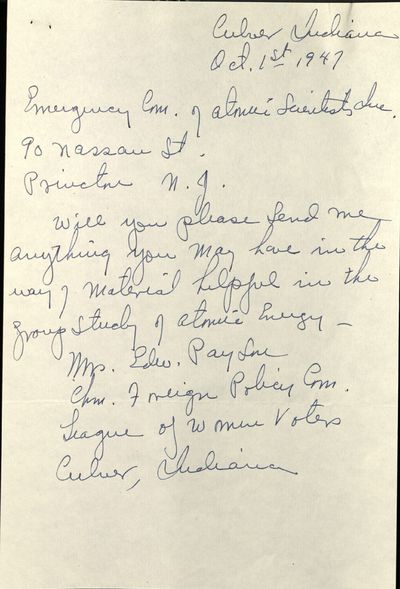 Culver Indiana
Oct. 1st 1947
Emergency Com. of atomic Scientists Inc.
90 Nassau St.
Princeton N. J.
Will you please send me
anything you may have in the
way of material helpful in the
group study of atomic Energy —
Mrs. Edw. Payson
Chm. Foreign Policy Com.
League of Women Voters
Culver, Indiana